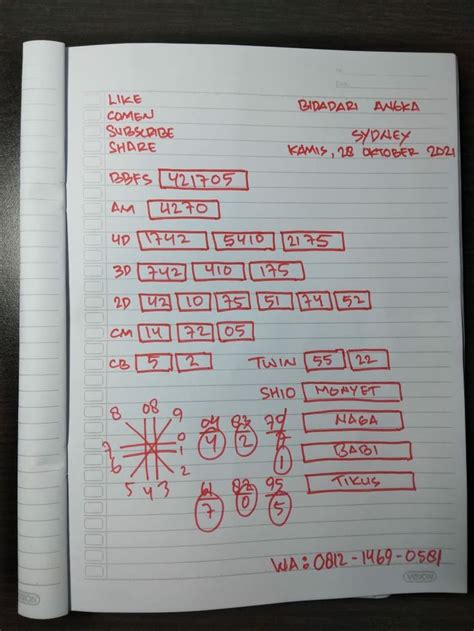 LIKE
COMEN
SUBSCRIBE
SHARE
BIDADARI ANGKA
SYDNEY
KAMIS, 28 OKTOBER 2021
BBFS 421705
AM 4270
4D 1742 5410 2175
3D 742 410 175
2D 42 10 75 51 74 52
CM 14 72 05
CB 5 2 TWIN 55 22
SHIO MONYET
NAGA
BABI
TIKUS
8 08 9
7 0
6 1
5 4 3 2
04 83 79
4 2 1
61 82 95
7 0 5
WA: 0812-1469-0581
VISION